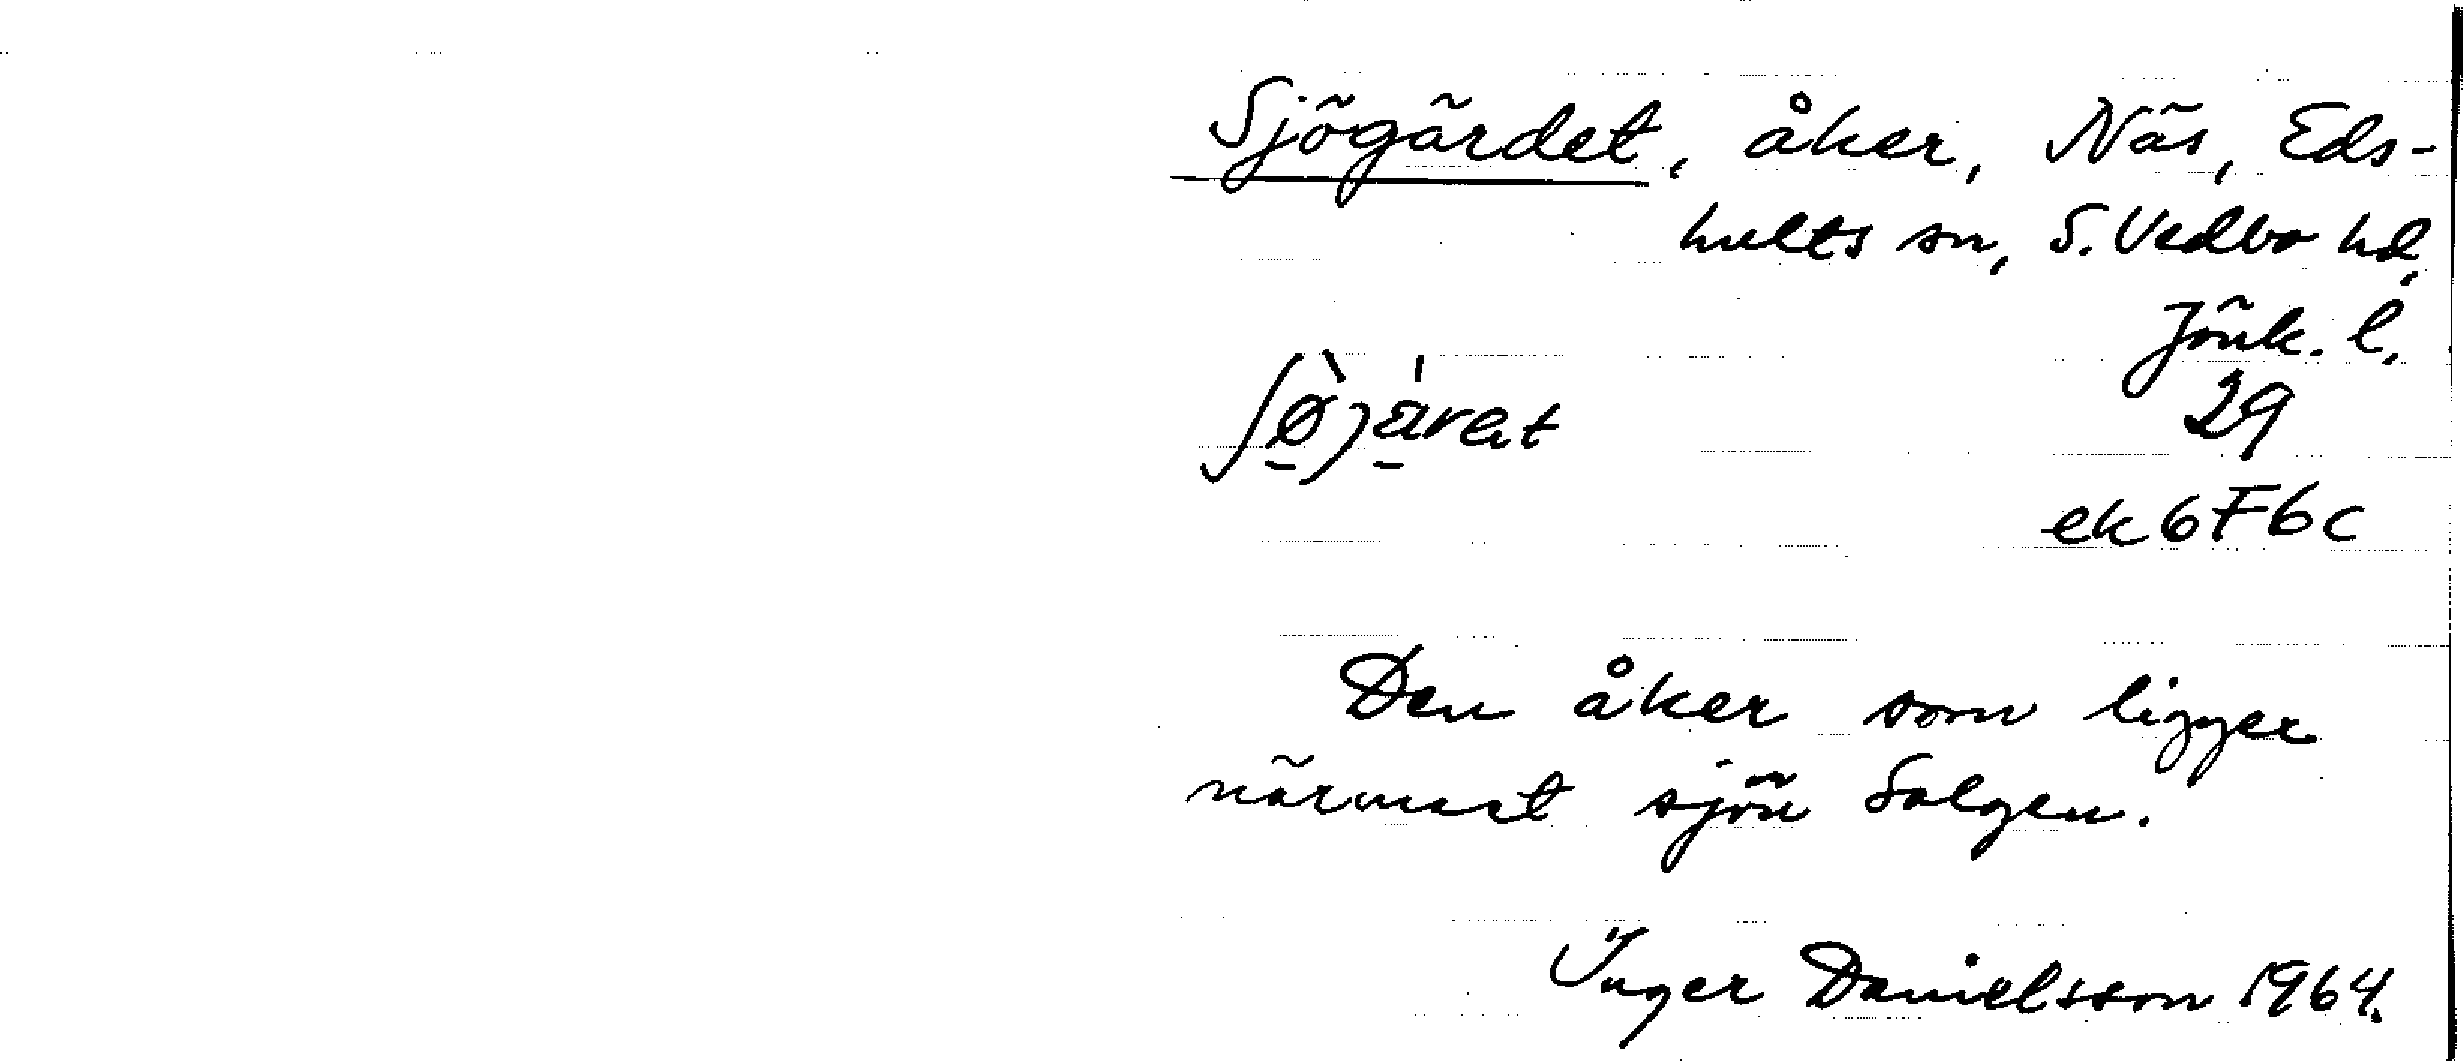 Sjögärdet, åker, Näs, Eds-
hults sn, S. Vedbo hd,
Jönk. l.
29
ek 6F6c
Den åker som ligger
närmast sjön Solgen.
Inger Danielsson 1964.